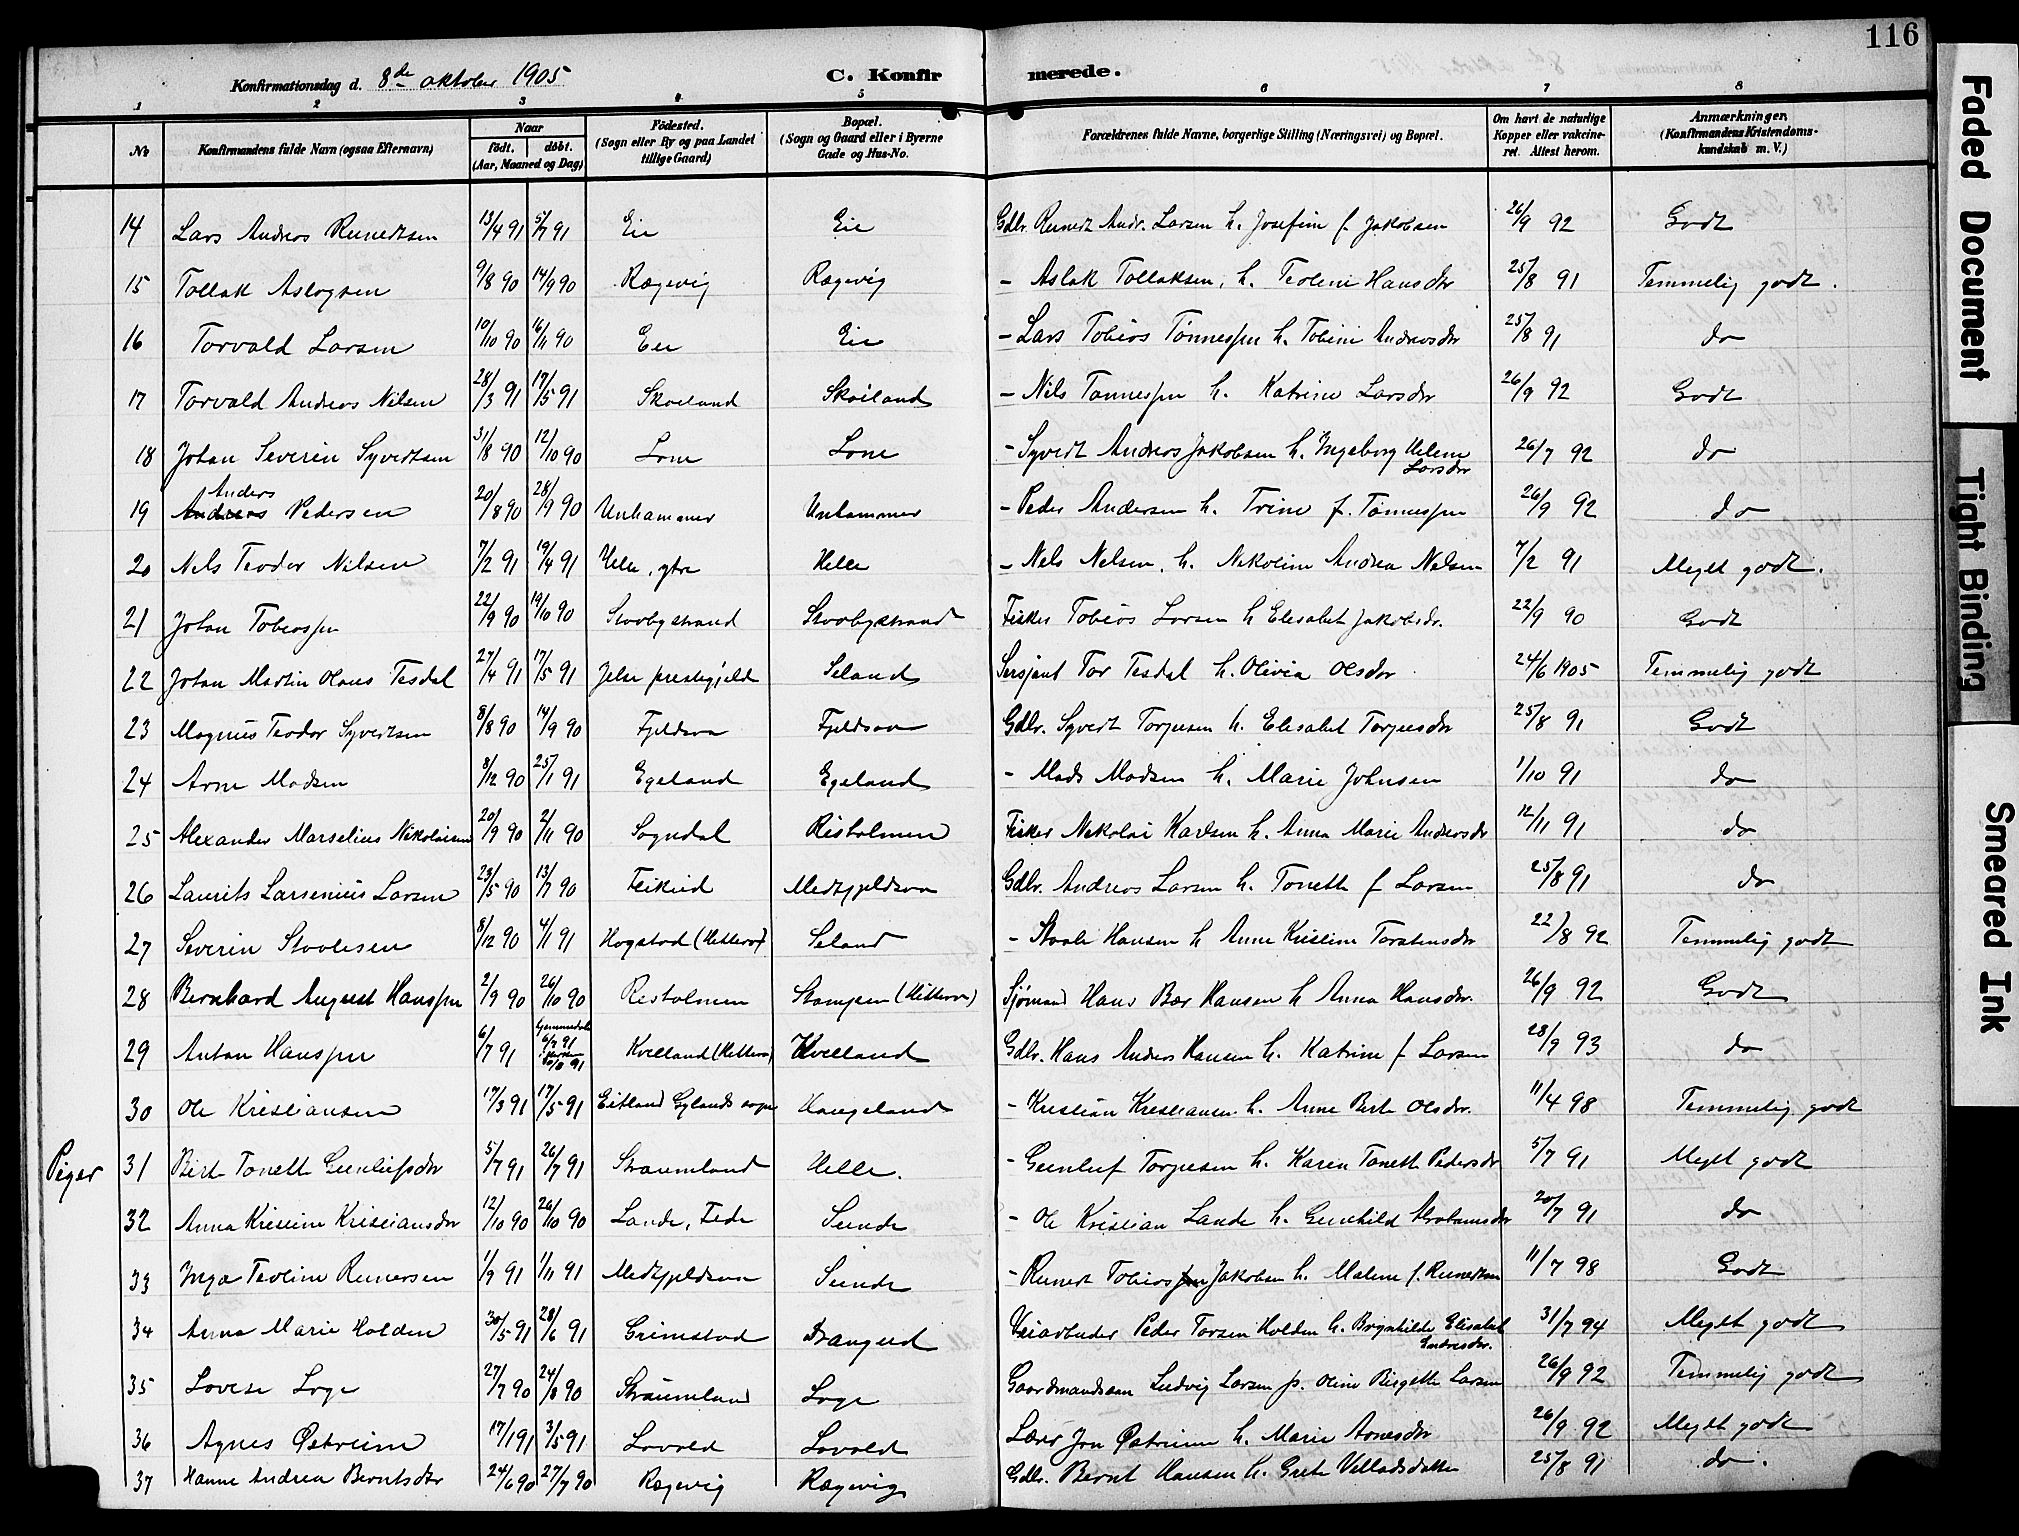 116
Konfirmationsdag d. 8de oktober 1905 C. Konfirmerede.
1 2 3 4 5 6 7 8
No Konfirmandens fulde Navn (ogsaa Efternavn) Naar født. døbt. (Aar, Maaned og Dag) Födested. (Sogn eller By og paa Landet tillige Gaard) Bopæl. (Sogn og Gaard eller i Byerne Gade og Hus-No. Forældrenes fulde Navne, borgerlige Stilling (Næringsvei) og Bopæl. Om havt de naturlige Kopper eller vakcineret. Attest herom. Anmærkninger. (Konfirmandens Kristendomskundskab m. V.)
14 Lars Andreas Reinertsen 13/4 91 5/7 91 Eie Eie Gdbr. Reinert Andr. Larsen h. Josefine f. Jakobsen 26/9 92 Godt
15 Tollak Aslagsen 9/8 90 14/9 90 Rægevig Rægevig - Aslak Tollaksen, h. Teoline Hansdtr 25/8 91 Temmelig godt.
16 Torvald Larsen 10/10 90 16/11 90 Eie Eie - Lars Tobias Tønnessen h. Tobine Andreasdtr 25/8 91 do
17 Torvald Andreas Nilsen 28/3 91 17/5 91 Skoiland Skoiland - Nils Tønnessen h. Katrine Larsdtr 26/9 92 Godt
18 Johan Severin Syvertsen 31/8 90 12/10 90 Lone Lone - Syvert Andreas Jakobsen h. Ingeborg Helene Larsdtr 26/7 92 do
19 Andreas Anders Pedersen 20/8 90 28/9 90 Unhammer Unhammer - Peder Andersen h. Trine f. Tønnessen 26/9 92 do
20 Nils Teodor Nilsen 7/2 91 19/4 91 Helle, ytre Helle - Nils Nilsen, h. Nikoline Andrea Nilsen 7/2 91 Meget godt.
21 Johan Tobiassen 22/9 90 19/10 90 Stoobystrand Stoobystrand Fisker Tobias Larsen h Elisabet Jakobsdr. 22/9 90 Godt
22 Johan Martin Olaus Tesdal 27/4 91 17/5 91 Jelse prestegjeld Seland Sersjant Tor Tesdal h. Olivia Olsdtr 24/6 1905 Temmelig godt
23 Magnus Teodor Syvertsen 8/8 90 14/9 90 Fjeldsaa Fjeldsaa Gdbr. Syvert Torjusen h. Elisabet Torjusdtr 25/8 91 Godt
24 Arne Madsen 8/12 90 25/1 91 Egeland Egeland - Mads Madsen h. Marie Johnsen 1/10 91 do
25 Alexander Marselius Nikolaisen 20/9 90 2/11 90 Sogndal Risholmen Fisker Nikolai Karlsen h. Anna Marie Andreasdtr 12/11 91 do
26 Laurits Larsenius Larsen 23/5 90 13/7 90 Feikied Medtfjeldsaa Gdbr. Andreas Larsen h. Tonette f Larsen 25/8 91 do
27 Severin Staalesen 8/12 90 4/1 91 Hogstad (Hetterø) Seland - Staale Hansen h Anne Kristine Torstensdtr 22/8 92 Temmelig godt
28 Bernhard August Hanssen 2/9 90 26/10 90 Risholmen Stampen (Hitterø) Sjømand Hans Bær Hansen h Anna Hansdtr. 26/9 92 Godt
29 Anton Hanssen 6/7 91 hjemmedøbt 6/7 91 Kvelland (Hitterø) Kvelland Gdbr. Hans Anders Hansen h. Katrine f Larsen 28/9 93 do
30 Ole Kristiansen 17/3 91 17/5 91 Eitland Gylands sogn Haugeland - Kristian Kristiansen h. Anne Berte Olsdtr. 11/4 98 Temmelig godt
Piger 31 Berte Tonette Gunleifsdtr 5/7 91 26/7 91 Straumland Helle. - Gunleif Torjusen h. Karen Tonette Pedersdtr 5/7 91 Meget godt
32 Anna Kristine Kristiansdtr 12/10 90 26/10 90 Lande, Fede Sunde - Ole Kristian Lande h. Gunhild Abrahamsdtr 20/7 91 do
33 Inga Teoline Reinertsen 1/9 91 1/11 91 Medtfjeldsaa Sunde - Reinert Tobias Jakobsen h. Malene f. Reinertsen 11/7 98 Godt
34 Anna Marie Holden 30/5 91 28/6 91 Grimstad Drangeid Veiarbeider Peder Torsen Holden h. Brynhilde Elisabet Endresdtr. 31/7 94 Meget godt
35 Lovise Loge 27/7 90 24/8 90 Straumland Loge Gaardmandssøn Ludvig Larsen p. Oline Birgette Larsen 26/9 92 Temmelig godt
36 Agnes Østreim 17/1 91 3/5 91 Lovold Lovold Lærer Jon Østreim h. Marie Arnesdtr 26/9 92 Meget godt
37 Hanne Andrea Berntsdtr 24/6 90 27/7 90 Rægevig Rægevig Gdbr. Bernt Hansen h. Grete Villadsdatter 25/8 91 do.
Faded Document
Tight Binding
Smeared Ink